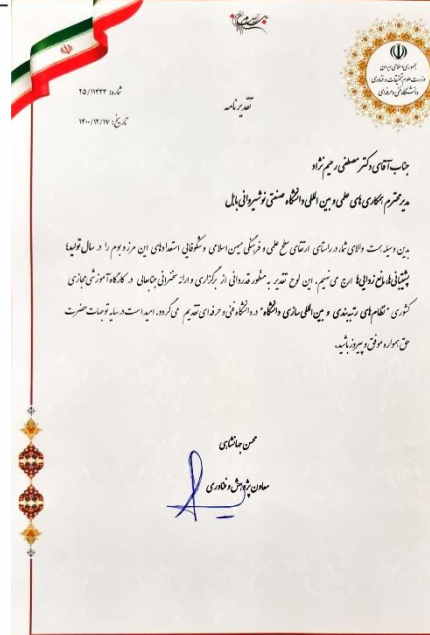 جمهوری اسلامی ایران
وزارت علوم، تحقیقات و فناوری
دانشگاه فنی و حرفه‌ای
شماره: ۲۵/۱۱۴۳۳
تاریخ: ۱۴۰۰/۱۲/۱۷
تقدیرنامه
جناب آقای دکتر مصطفی رحیم نژاد
مدیر محترم همکاری های علمی و بین المللی دانشگاه صنعتی نوشیروانی بابل
بدین وسیله همت والای شما در راستای ارتقای سطح علمی و فرهنگی میهن اسلامی و شکوفایی استعدادهای این مرز و بوم را در سال تولیدها
پشتیبانی‌ها، مانع زدوایی‌ها ارج می‌نهیم. این لوح تقدیر به منظور قدردانی از برگزاری و ارائه سخنرانی جنابعالی در کارگاه آموزشی مجازی
کشوری "نظام های رتبه بندی و بین المللی سازی دانشگاه" در دانشگاه فنی و حرفه ای تقدیم می گردد. امید است در سایه توجهات حضرت
حق همواره موفق و پیروز باشید.
محسن جانشاهی
معاون پژوهش و فناوری